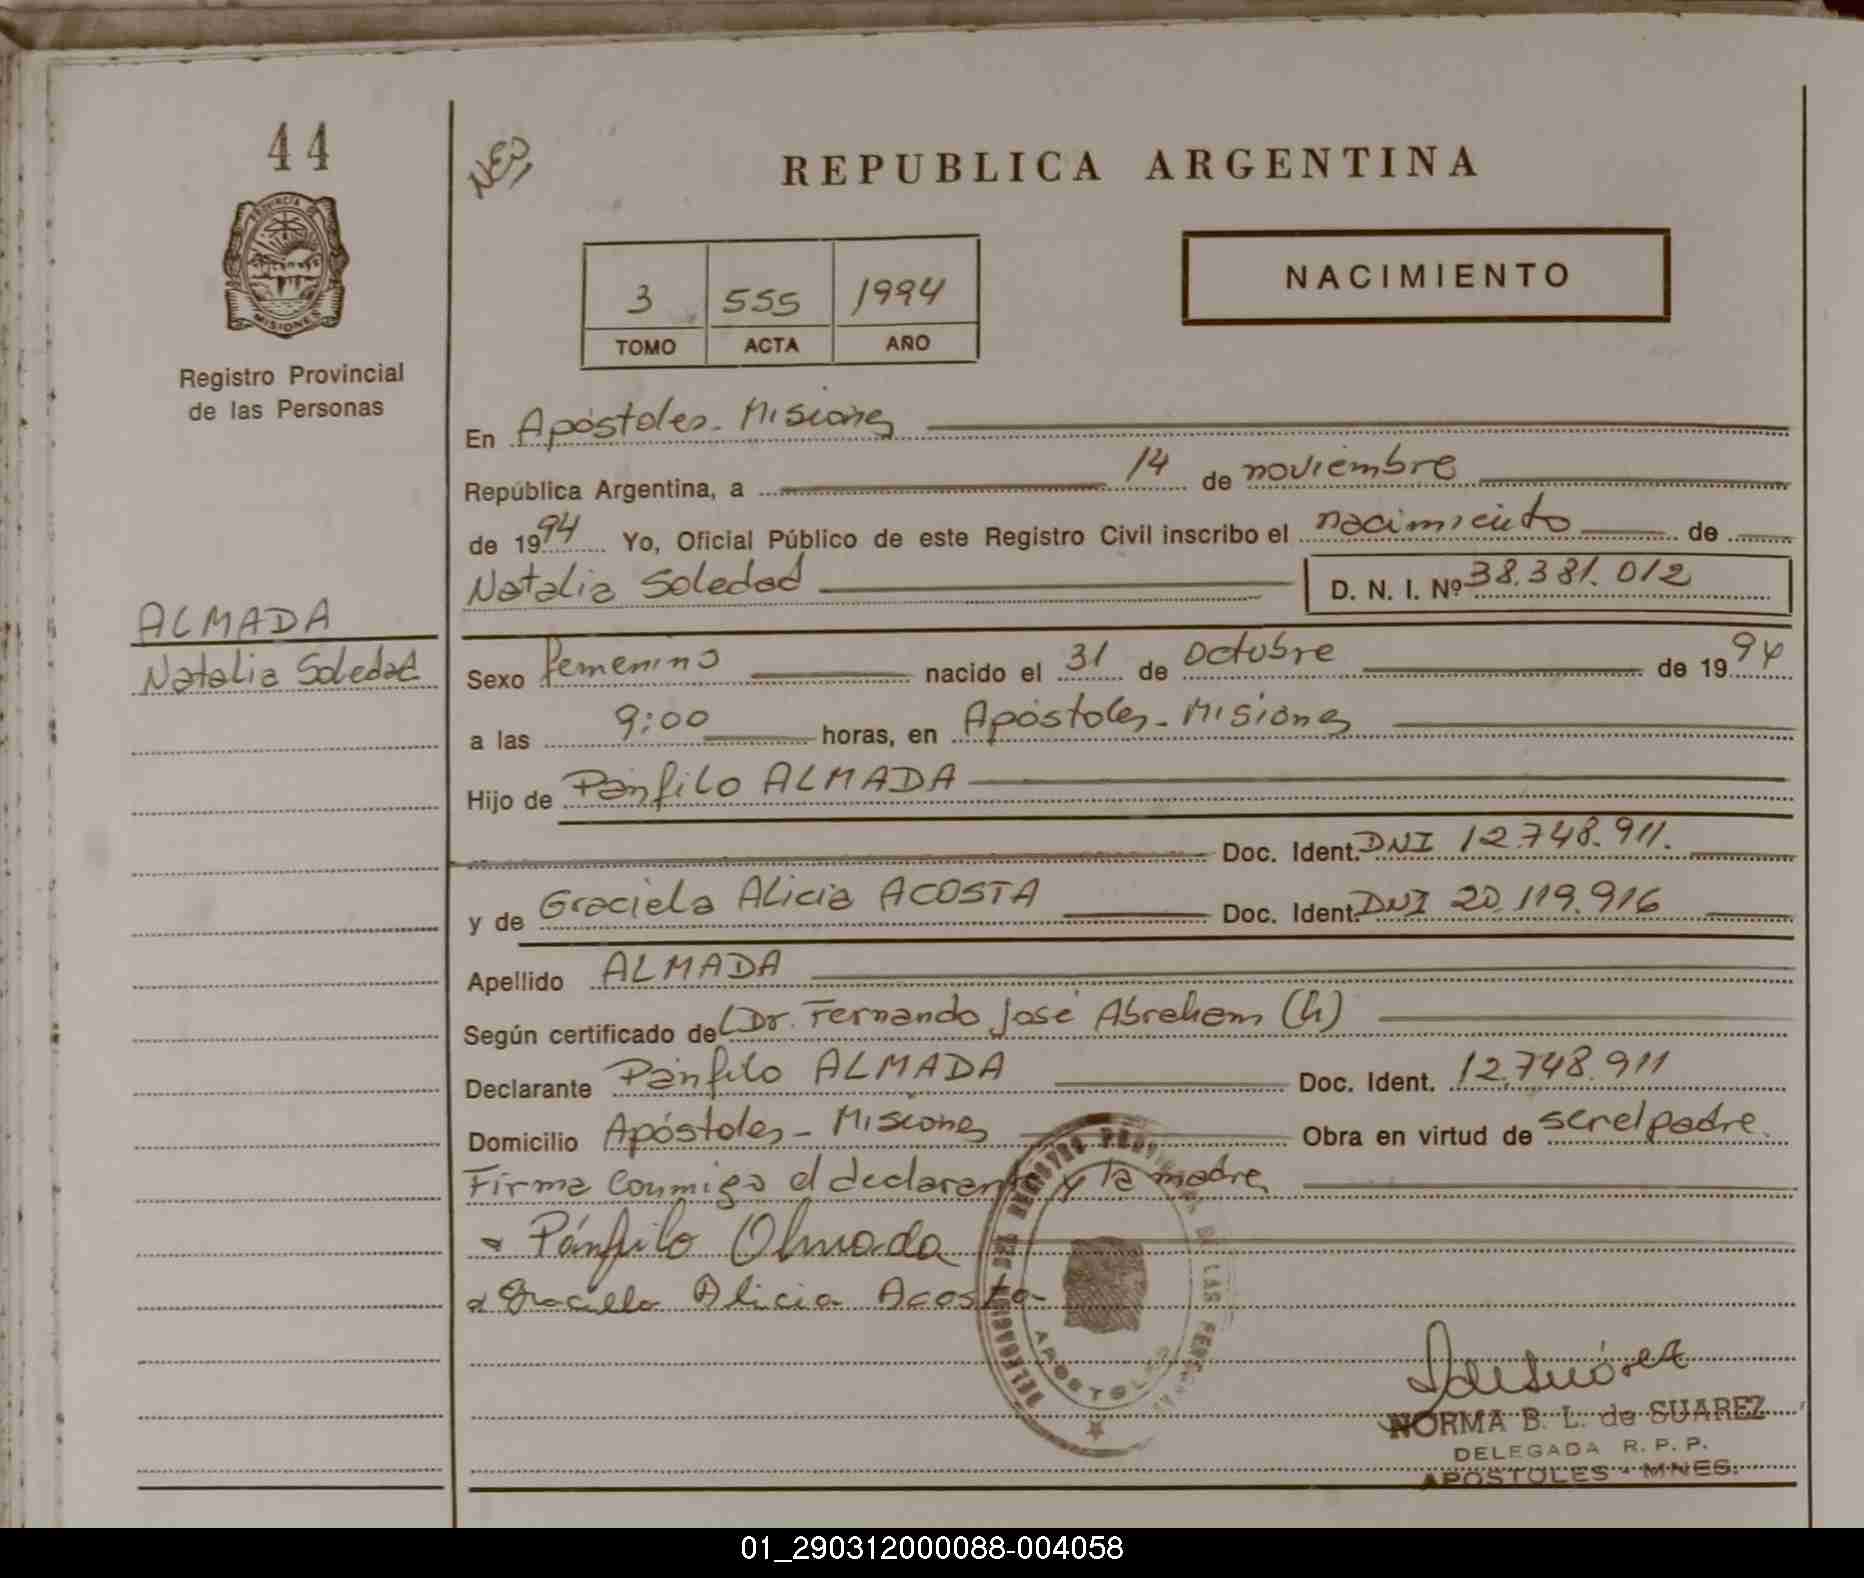 44
NEP,
REPUBLICA ARGENTINA
PROVINCIA DE
MISIONES
Registro Provincial
de las Personas
3 555 1994
TOMO ACTA AÑO
NACIMIENTO
En Apóstoles - Misiones
República Argentina, a 14 de noviembre
de 1994 Yo, Oficial Público de este Registro Civil inscribo el nacimiento de
Natalia Soledad D. N. I. Nº 38.381.012
ALMADA
Natalia Soledad
Sexo femenino nacido el 31 de Octubre de 1994
a las 9:00 horas, en Apóstoles - Misiones
Hijo de Pánfilo ALMADA
Doc. Ident. DNI 12.748.911.
y de Graciela Alicia ACOSTA Doc. Ident. DNI 20.119.916
Apellido ALMADA
Según certificado de Dr. Fernando José Abraham (h)
Declarante Pánfilo ALMADA Doc. Ident. 12.748.911
Domicilio Apóstoles - Misiones Obra en virtud de ser el padre.
Firma conmigo el declarante y la madre,
Pánfilo Almada
Graciela Alicia Acosta
DELEGACION DEL REGISTRO PROVINCIAL DE LAS PERSONAS
APOSTOLES
NORMA B. L. de SUAREZ
DELEGADA R. P. P.
APOSTOLES - MNES.
01_290312000088-004058